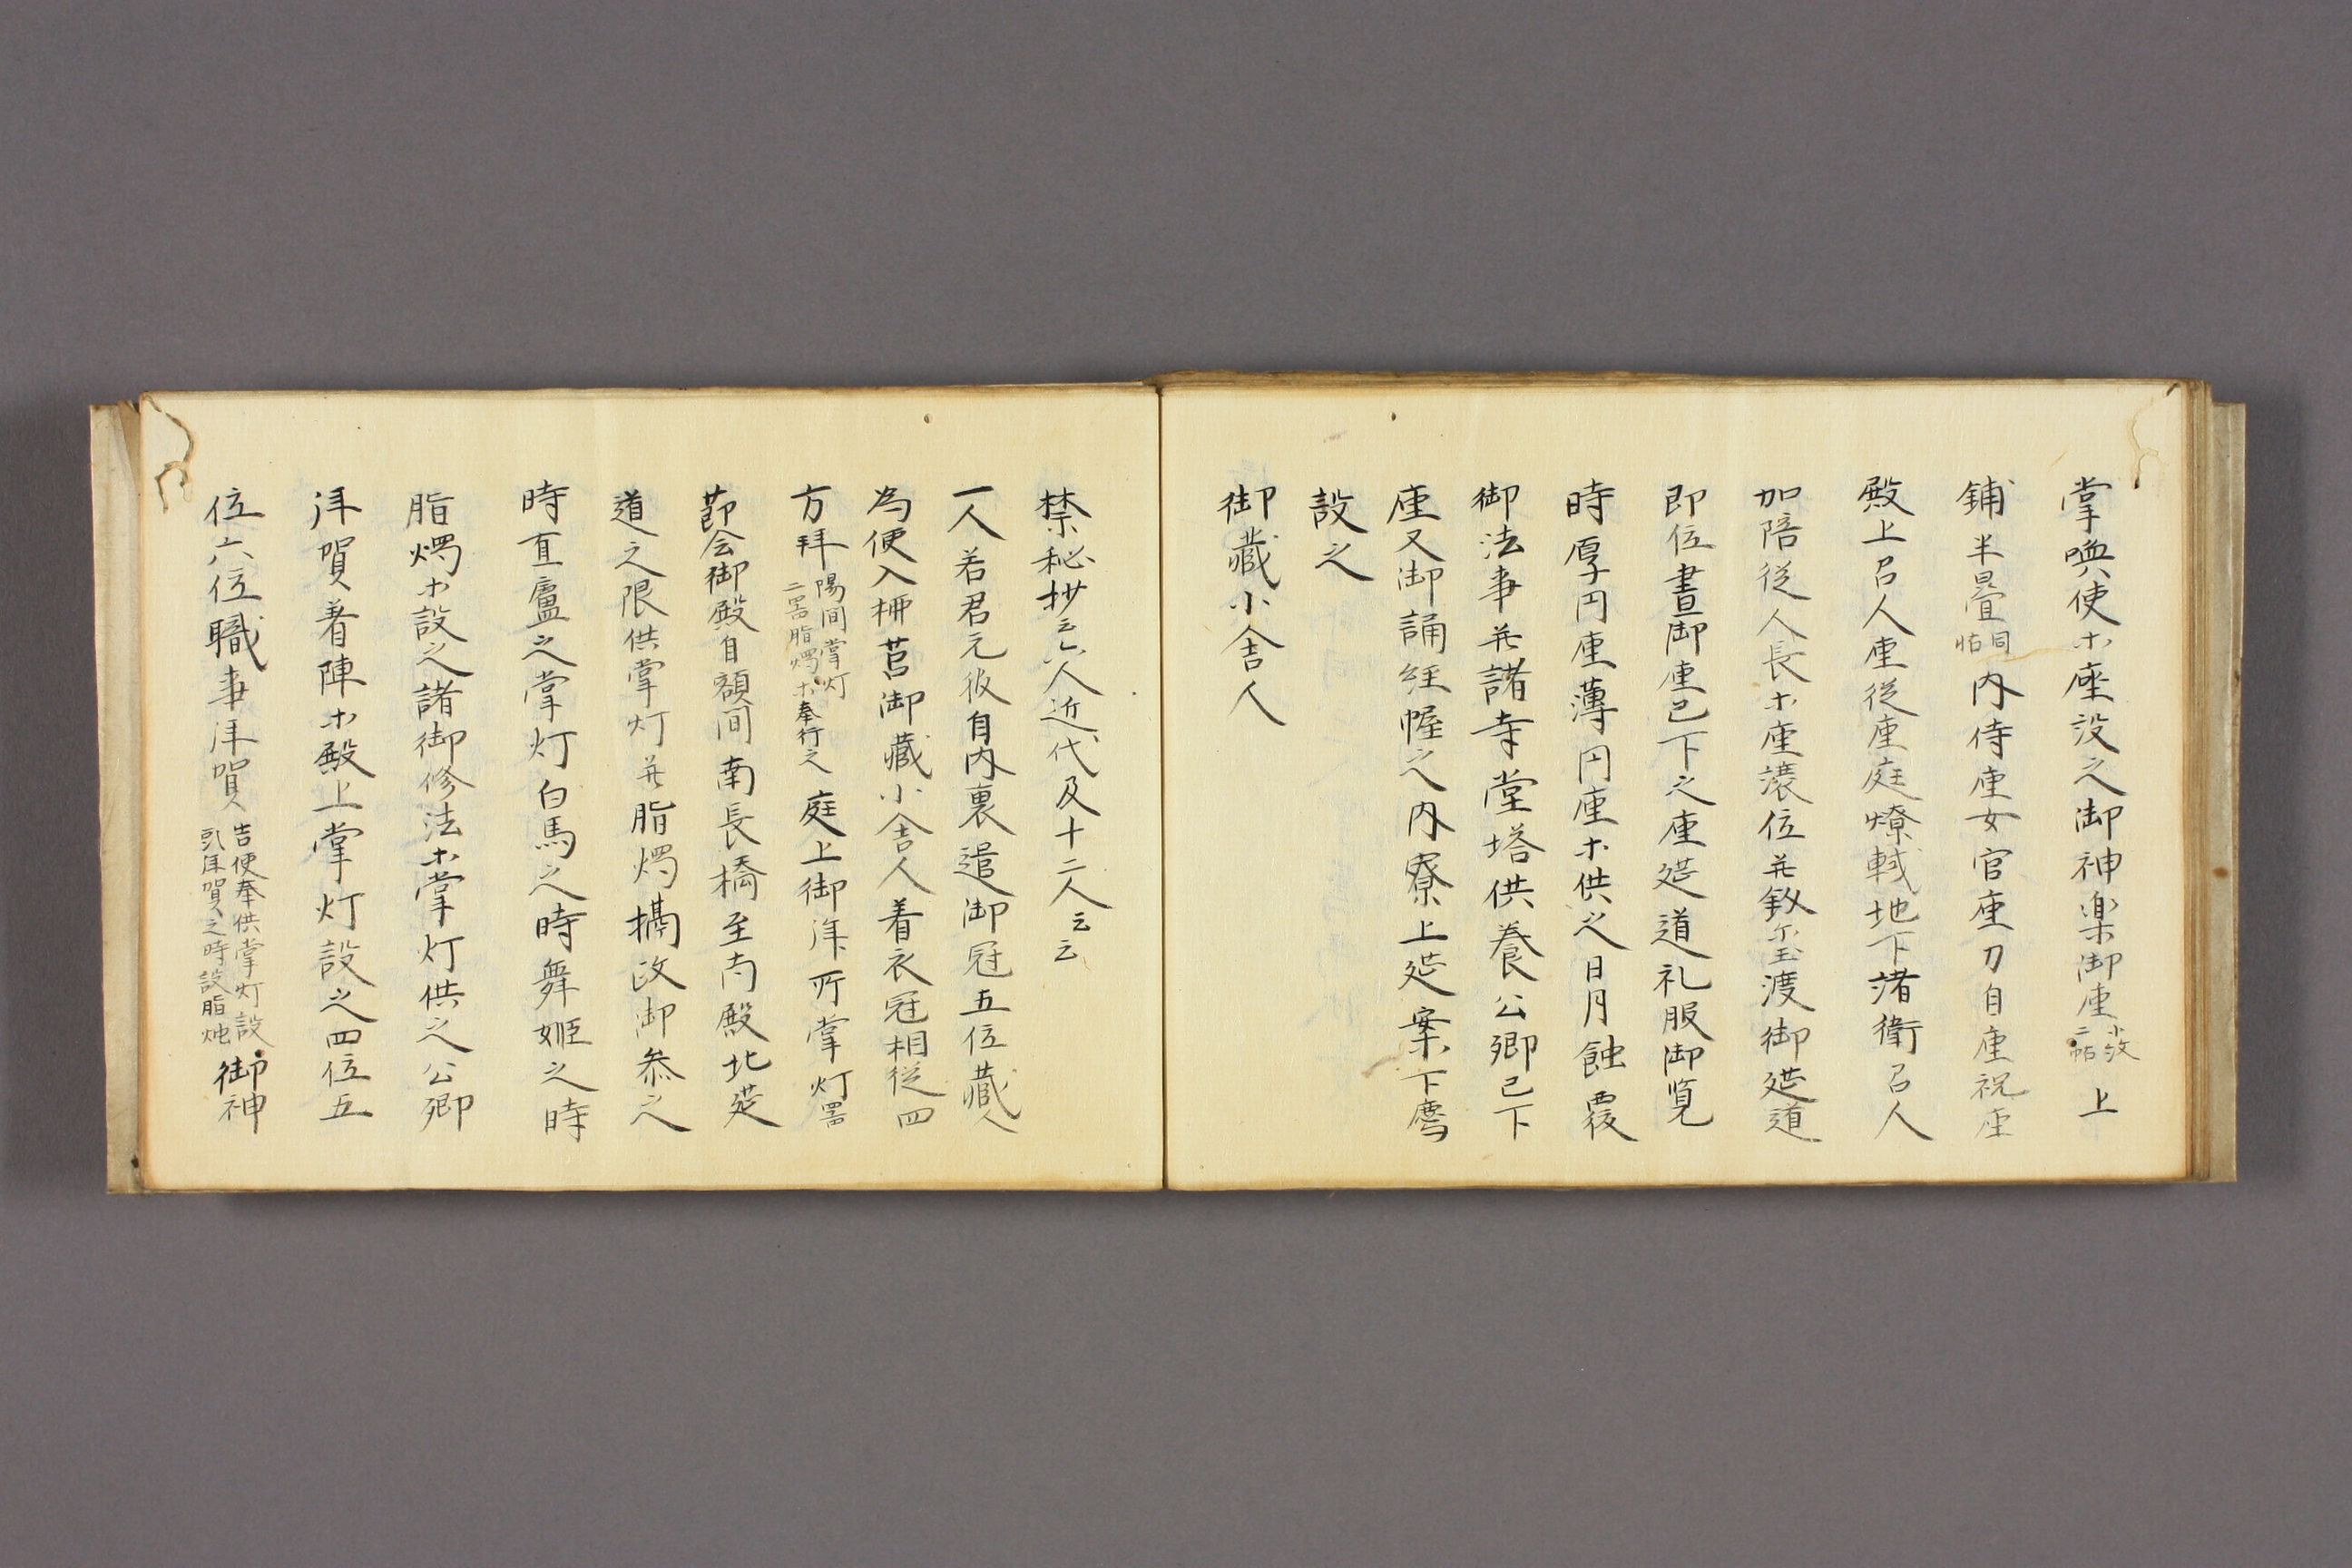 掌喚使ホ座設之御神楽御座小文二帖上
鋪半畳同帖内侍座女官座刀自座祝座
殿上召人座従座庭燎軾地下諸衛召人
加陪従人長ホ座譲位并釼璽渡御筵道
即位晝御座已下之座筵道礼服御覧
時厚円座薄円座ホ供之日月蝕覆
御法事并諸寺堂塔供養公卿已下
座又御誦経幄之内寮上筵案下薦
設之
御藏小舎人
禁秘抄云六人近代及十二人云云
一人若君元服自内裏遣御冠五位藏人
為使入柳筥御藏小舎人着衣冠相従四
方拝陽間掌灯二署脂燭ホ奉行之庭上御拝所掌灯署
節会御殿自額間南長橋至南殿北筵
道之限供掌灯并脂燭搆改御参之
時直廬之掌灯白馬之時舞姫之時
脂燭ホ設之諸御修法ホ掌灯供之公卿
拝賀着陣ホ殿上掌灯設之四位五
位六位職事拝賀吉使奉供掌灯設凡拝賀之時設脂燭御神